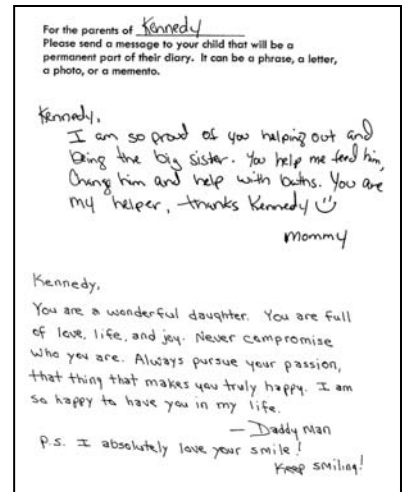 For the parents of Kennedy
Please send a message to your child that will be a
permanent part of their diary. It can be a phrase, a letter,
a photo, or a memento.
Kennedy,
I am so proud of you helping out and
being the big sister. You help me feed him,
Change him and help with baths. You are
my helper, thanks Kennedy
mommy
Kennedy,
You are a wonderful daughter. You are full
of love, life, and joy. Never compromise
who you are. Always pursue your passion,
that thing that makes you truly happy. I am
so happy to have you in my life.
— Daddy man
P.S. I absolutely love your smile!
Keep smiling!